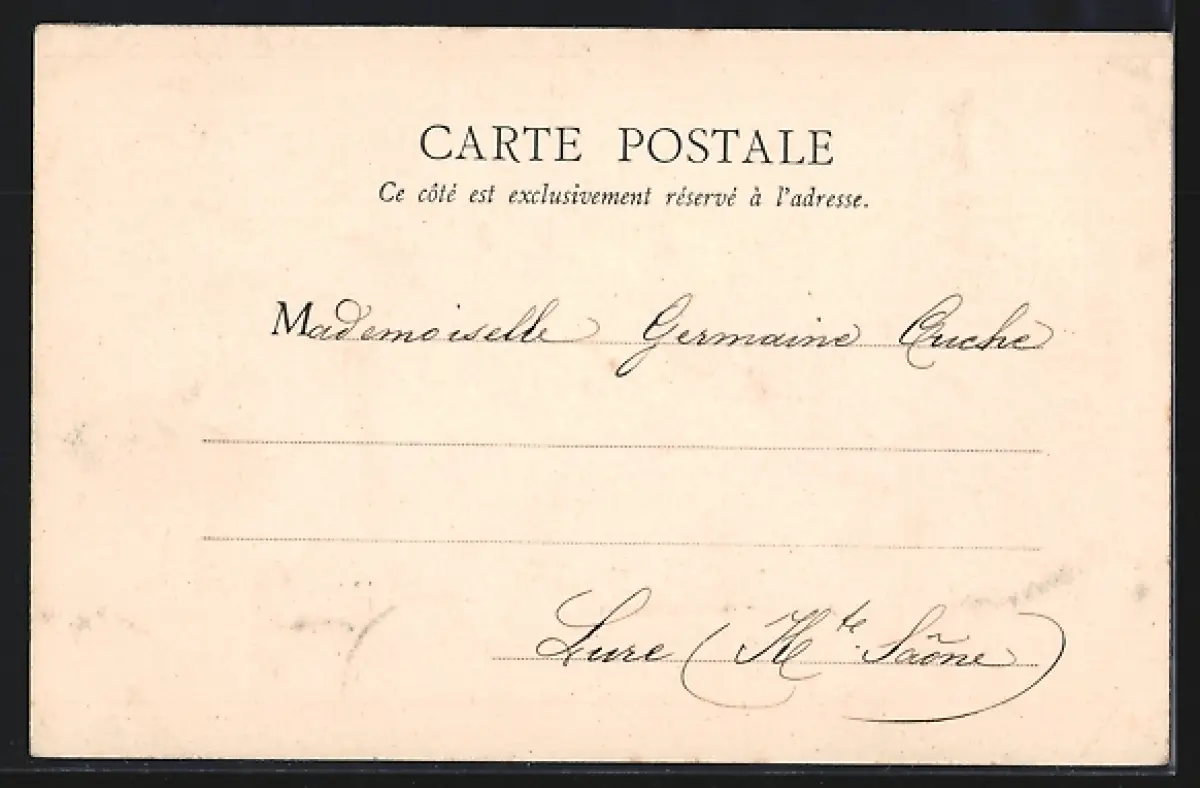 CARTE POSTALE
Ce côté est exclusivement réservé à l'adresse.
Mademoiselle Germaine
Lure (Hte Saône)